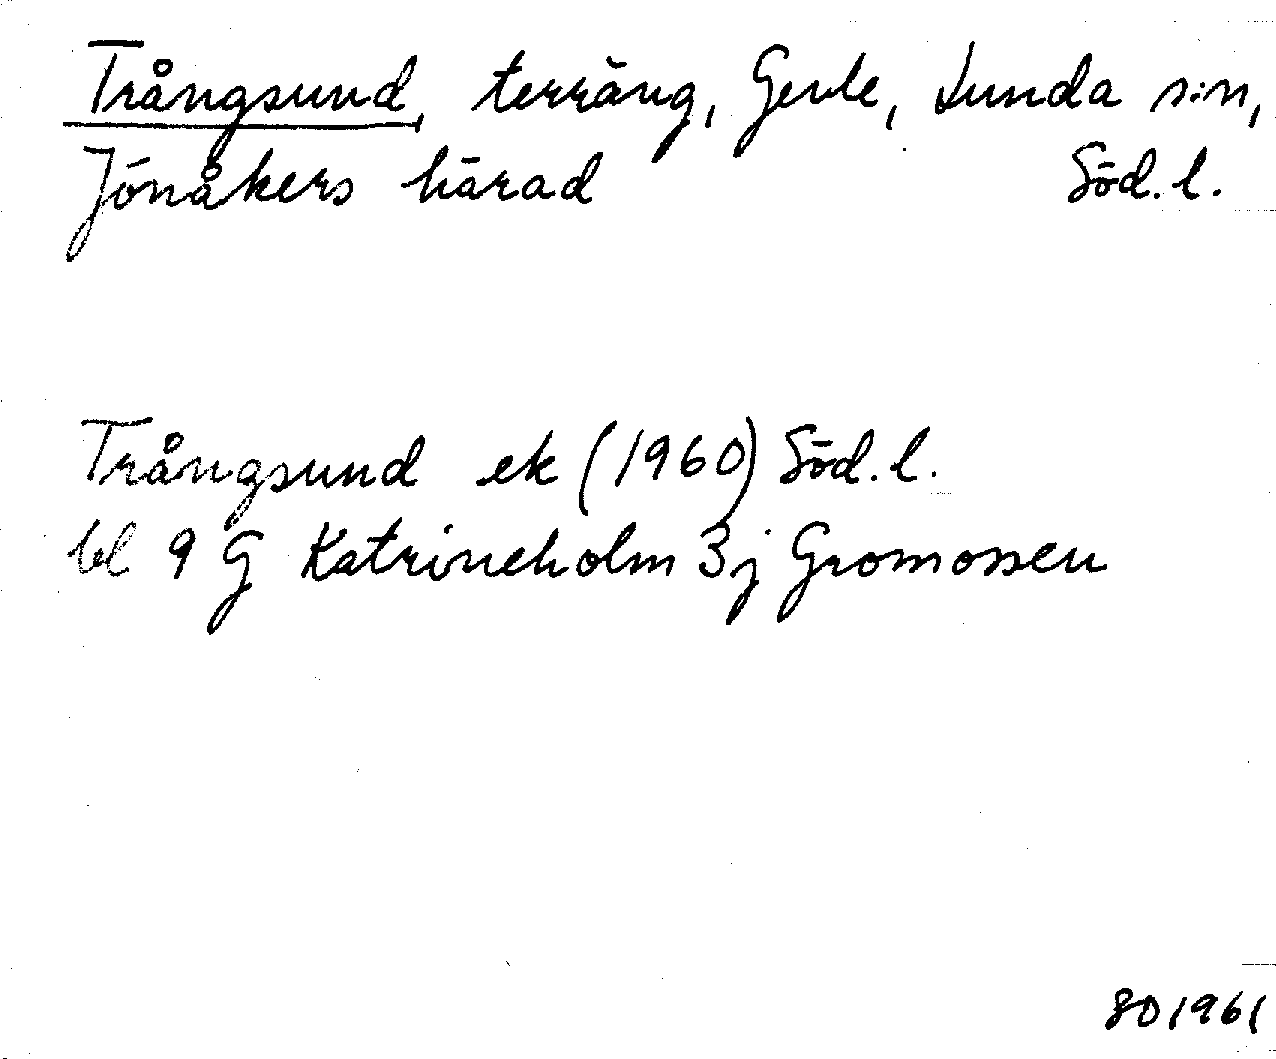 Trångsund, terräng, Gevle, Lunda s:n,
Jönåkers härad Söd.l.
Trångsund ek (1960) Söd.l.
bl 9 G Katrineholm 3j Gromossen
801961